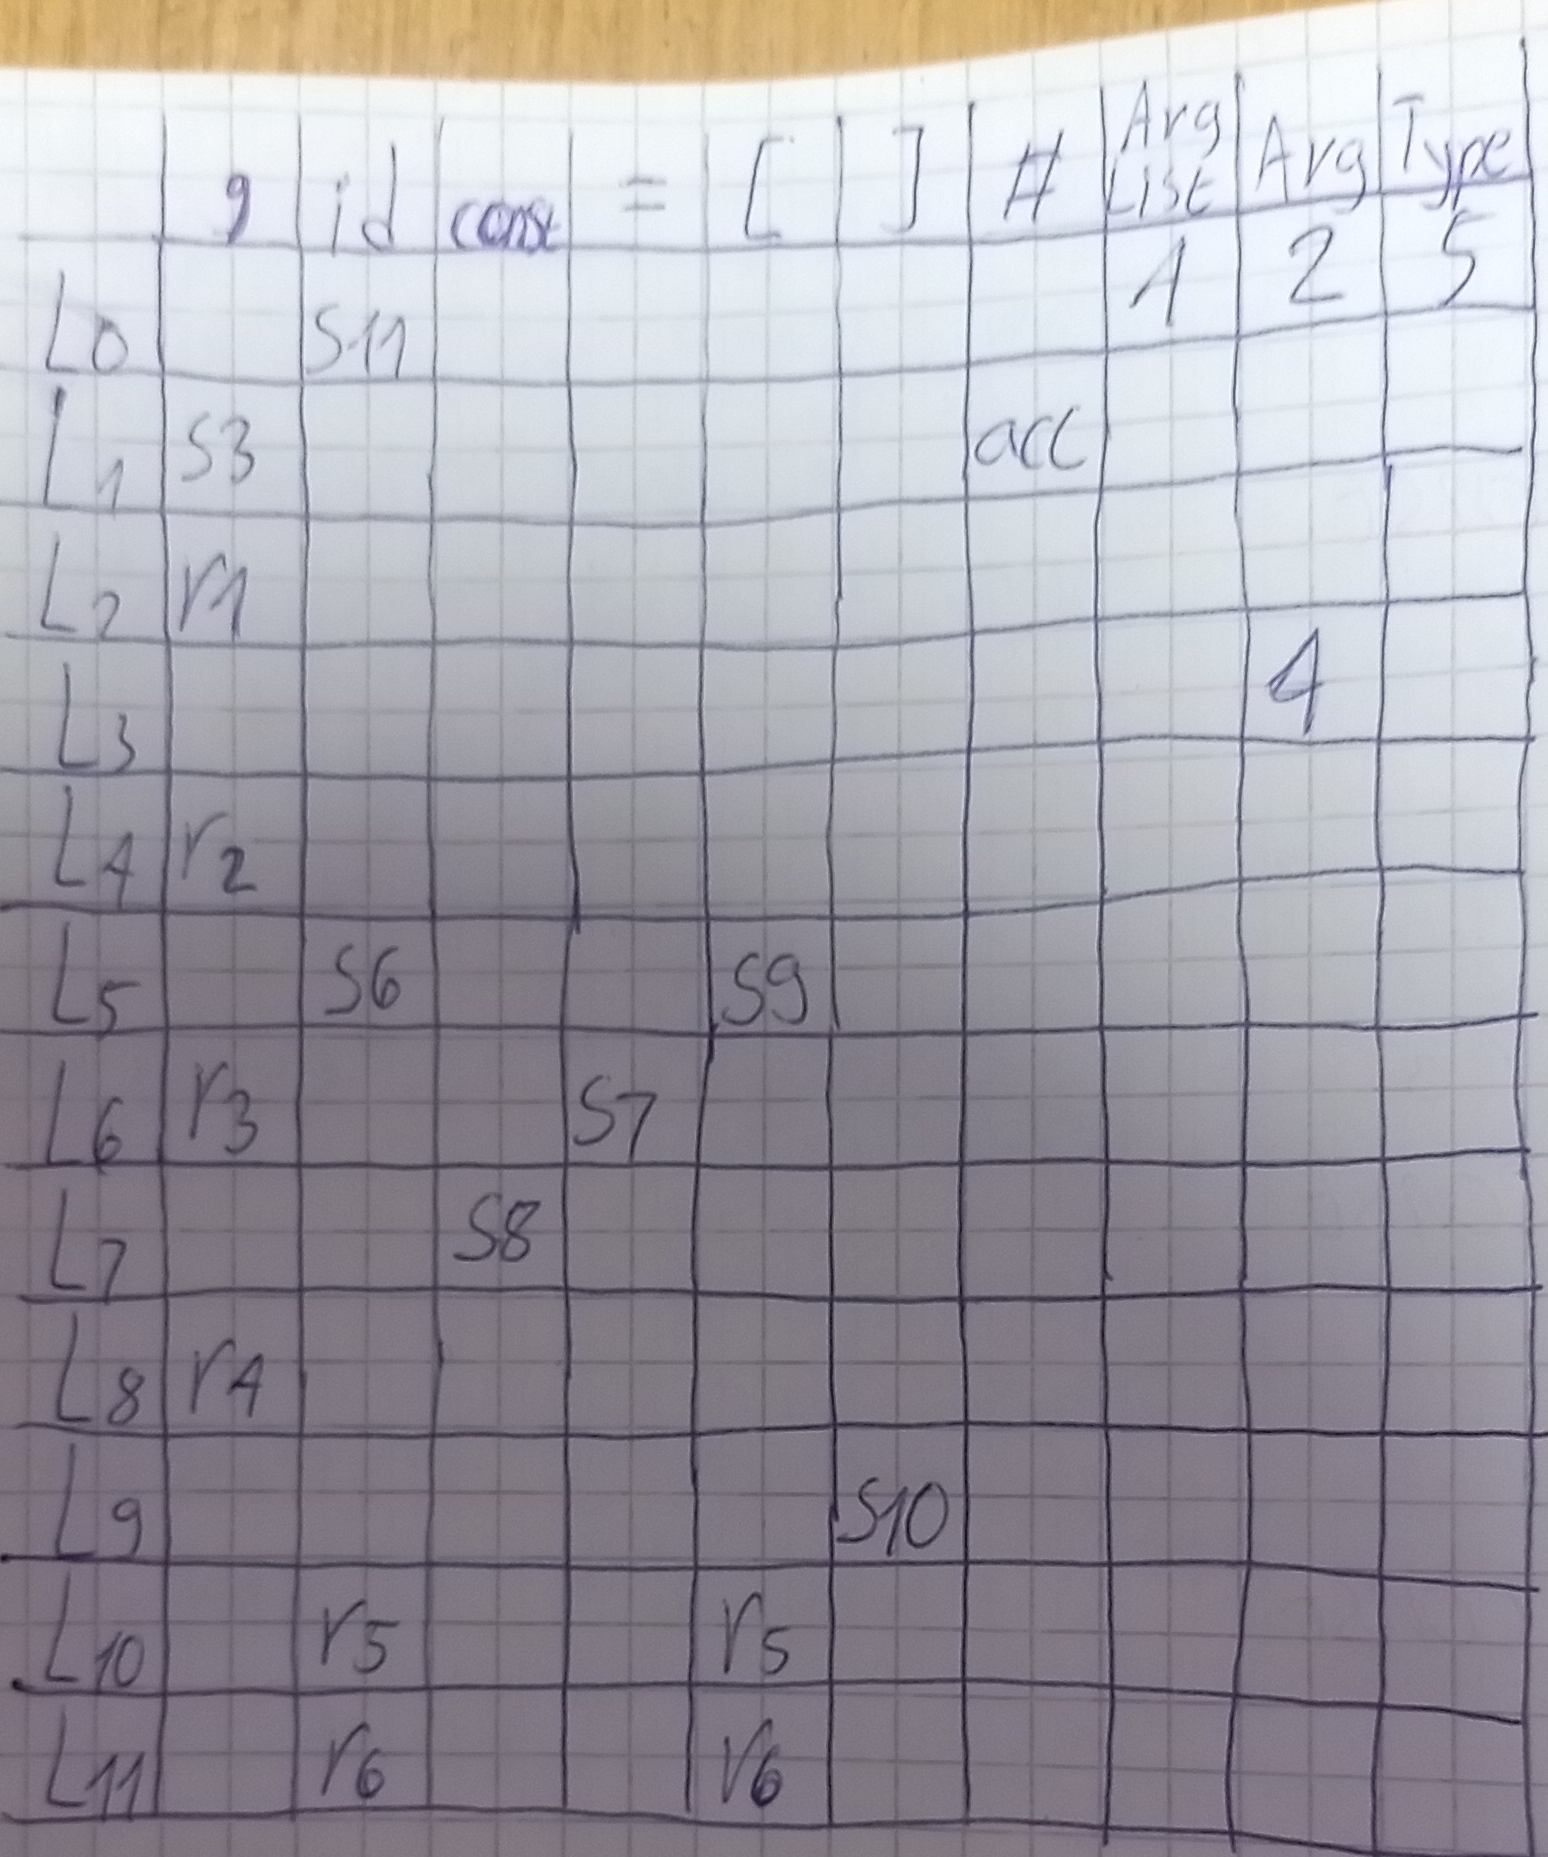 , id const = [ ] # Arg List Arg Type
L0 S11 1 2 5
L1 S3 acc
L2 r1
L3 4
L4 r2
L5 S6 S9
L6 r3 S7
L7 S8
L8 r4
L9 S10
L10 r5 r5
L11 r6 r6